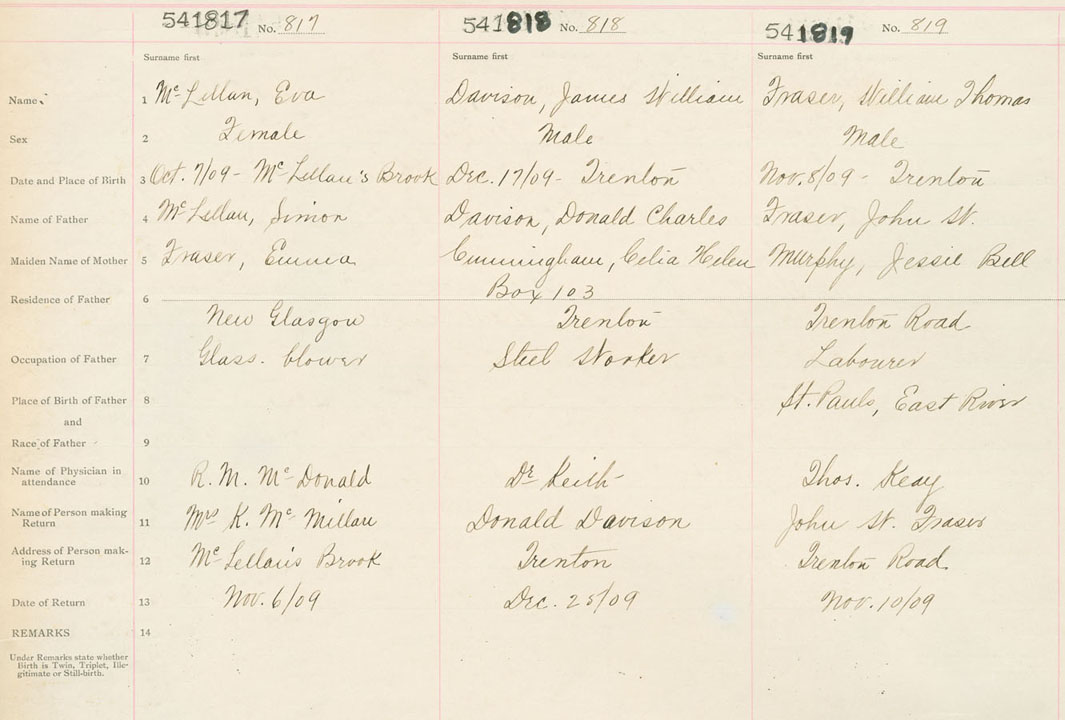 541817 No. 817 541818 No. 818 541819 No. 819
Surname first Surname first Surname first
Name 1 McLellan, Eva Davison, James William Fraser, William Thomas
Sex 2 Female Male Male
Date and Place of Birth 3 Oct. 7/09 - McLellan's Brook Dec. 17/09 - Trenton Nov. 8/09 - Trenton
Name of Father 4 McLellan, Simon Davison, Donald Charles Fraser, John W.
Maiden Name of Mother 5 Fraser, Emma Cunningham, Celia Helen Murphy, Jessie Bell
Box 103
Residence of Father 6
New Glasgow Trenton Trenton Road
Occupation of Father 7 Glass. blower Steel Worker Labourer
Place of Birth of Father 8 St. Pauls, East River
and
Race of Father 9
Name of Physician in
attendance 10 R. M. McDonald Dr Keith Thos. Keay
Name of Person making
Return 11 Mrs K. McMillan Donald Davison John W. Fraser
Address of Person mak-
ing Return 12 McLellan's Brook Trenton Trenton Road
Date of Return 13 Nov. 6/09 Dec. 25/09 Nov. 10/09
REMARKS 14
Under Remarks state whether
Birth is Twin, Triplet, Ille-
gitimate or Still-birth.